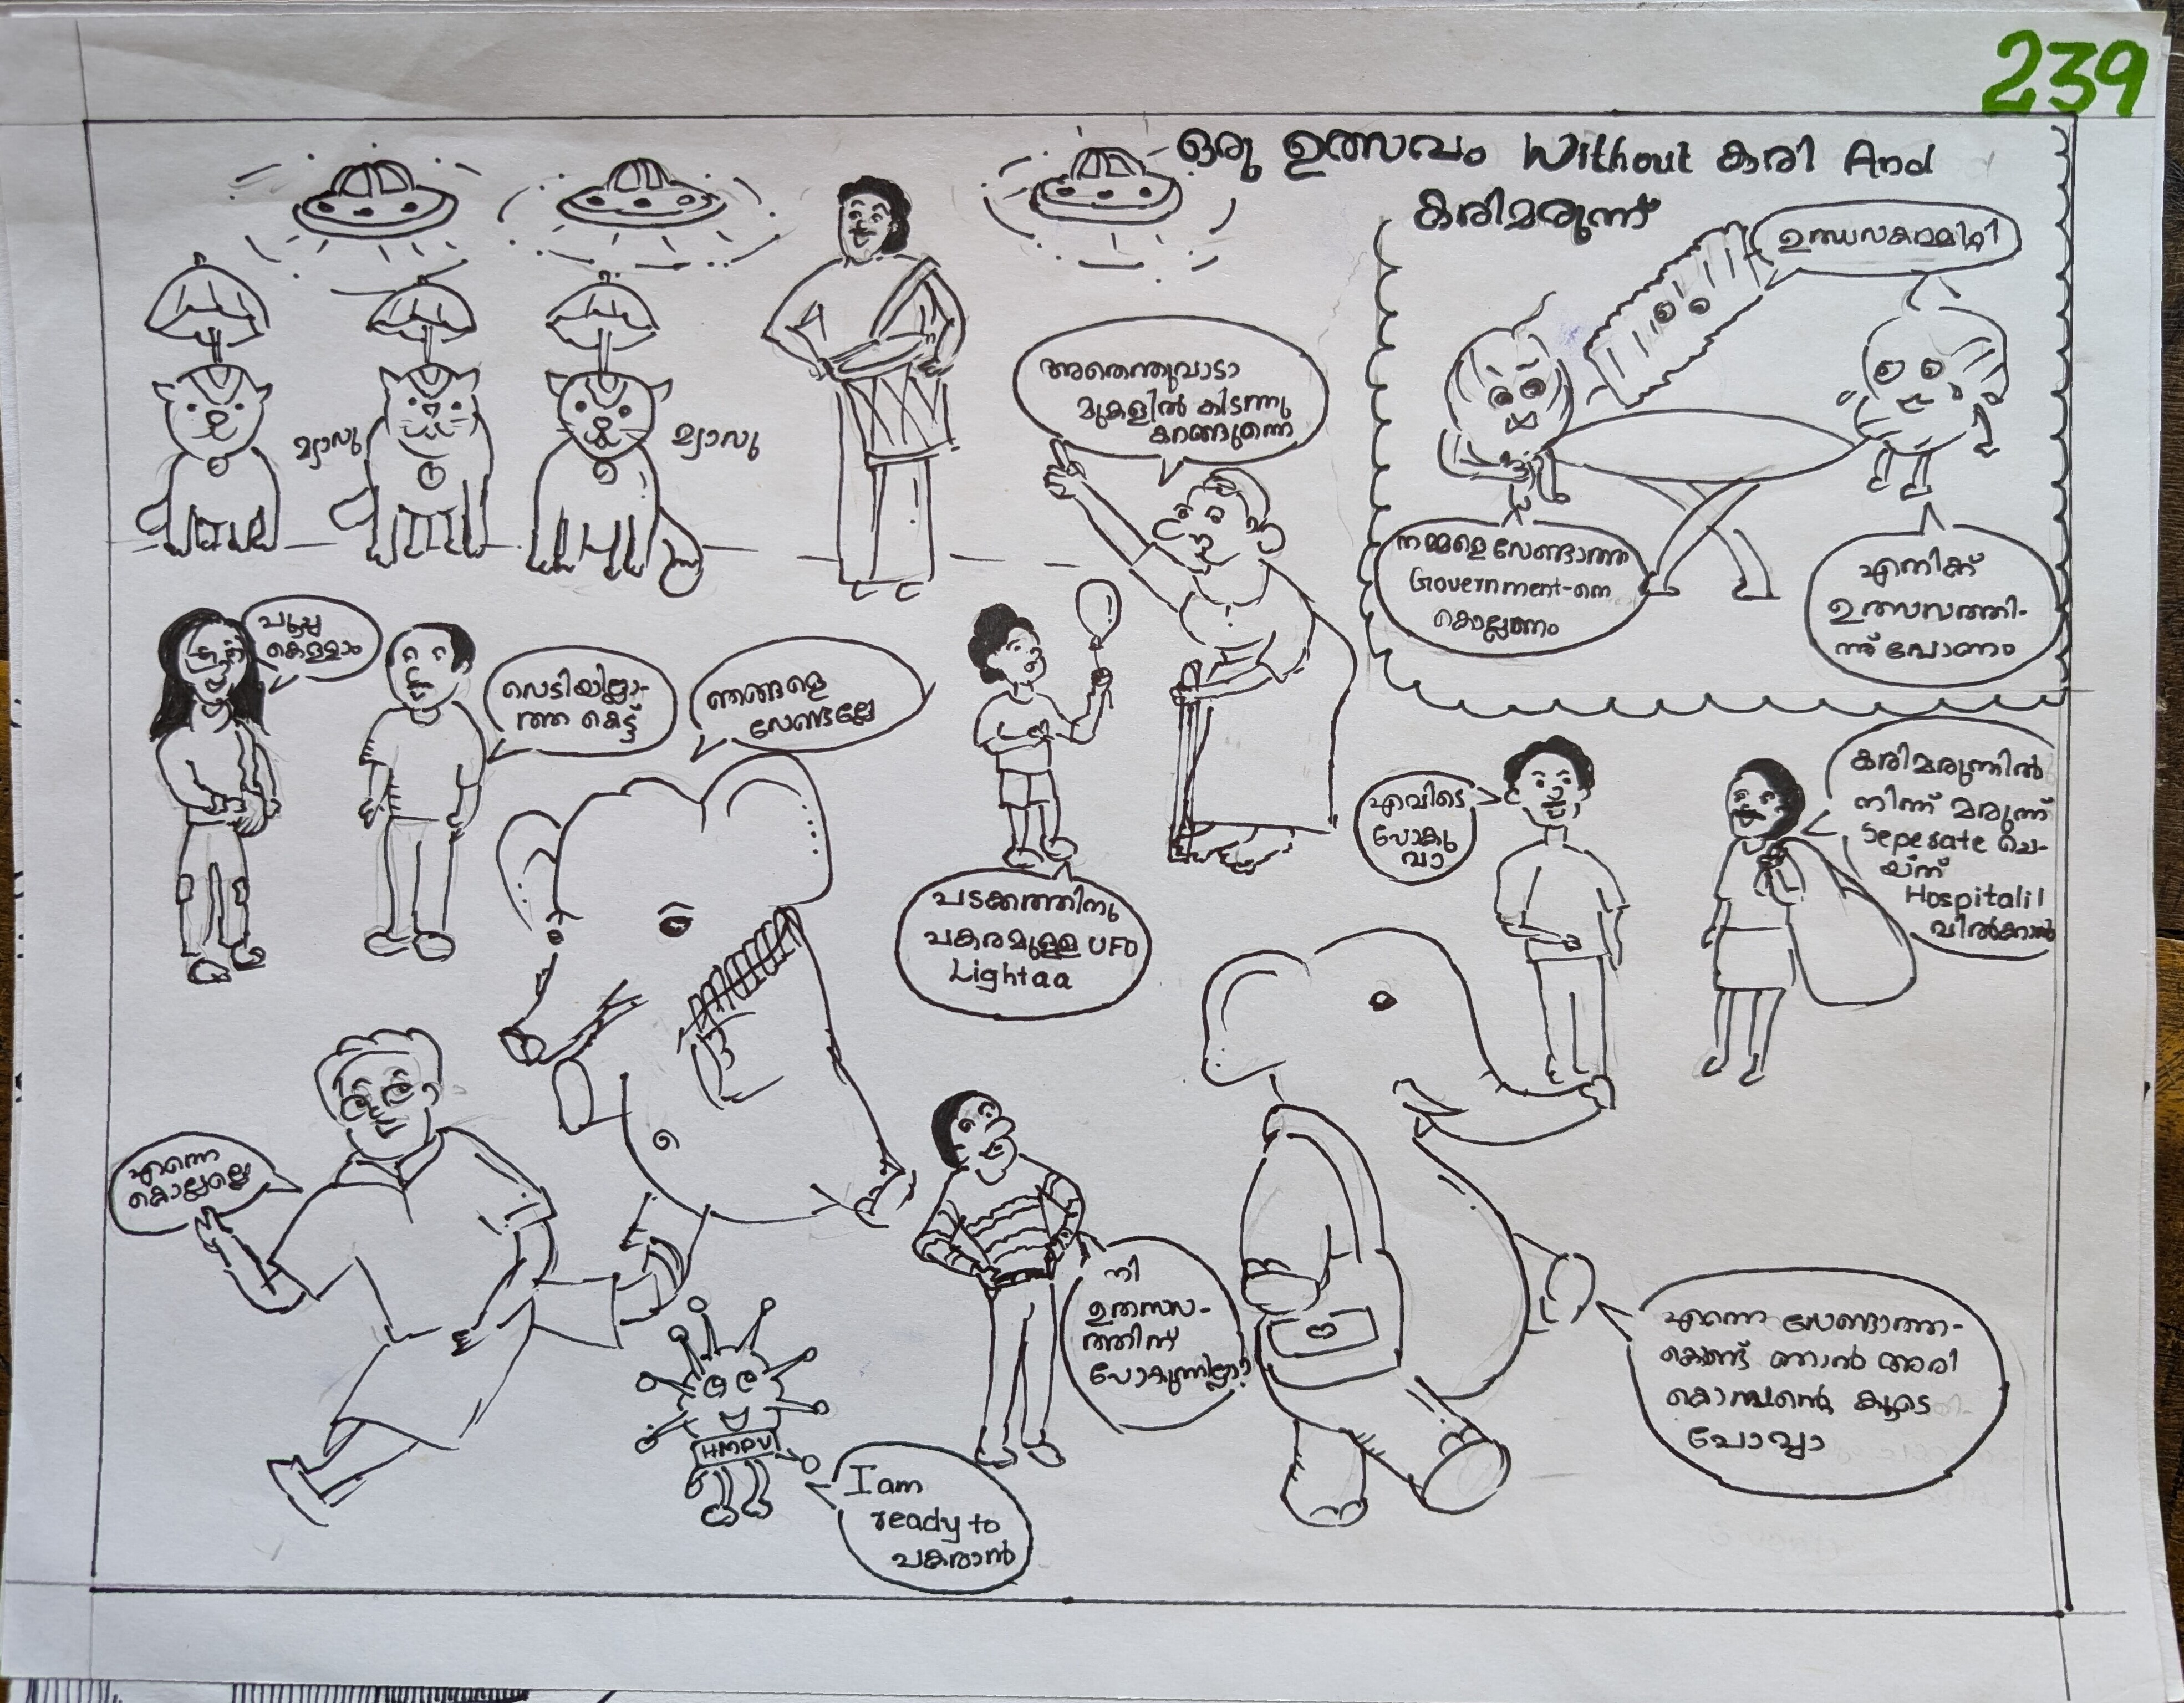 239
ഒരു ഉത്സവം Without കരി And
കരിമരുന്ന്
മ്യാവു
മ്യാവു
അതെന്തുവാടാ
മുകളിൽ കിടന്നു
കറങ്ങുന്നെ
നമ്മളെ വേണ്ടാത്ത
Government-നെ
കൊല്ലണം
എനിക്ക്
ഉത്സവത്തി-
ന്ന് പോണം
കൊള്ളാം
വെടിയില്ലാ-
ത്ത കെട്ട്
ഞങ്ങളെ
വേണ്ടല്ലേ
പടക്കത്തിനു
പകരമുള്ള UFO
Lightaa
എവിടെ
പോകു
വാ
കരിമരുന്നിൽ
നിന്ന് മരുന്ന്
Seperate ചെ-
യ്ത്
Hospitalil
വിൽക്കാൻ
എന്നെ
കൊല്ലല്ലെ
നി
ഉത്സവ-
ത്തിന്
പോകുന്നില്ലാ?
എന്നെ വേണ്ടാത്ത-
കൊണ്ട് ഞാൻ അരി
കൊമ്പന്റെ കൂടെ
പോവ്വാ
HMPV
I am
ready to
പകരാൻ